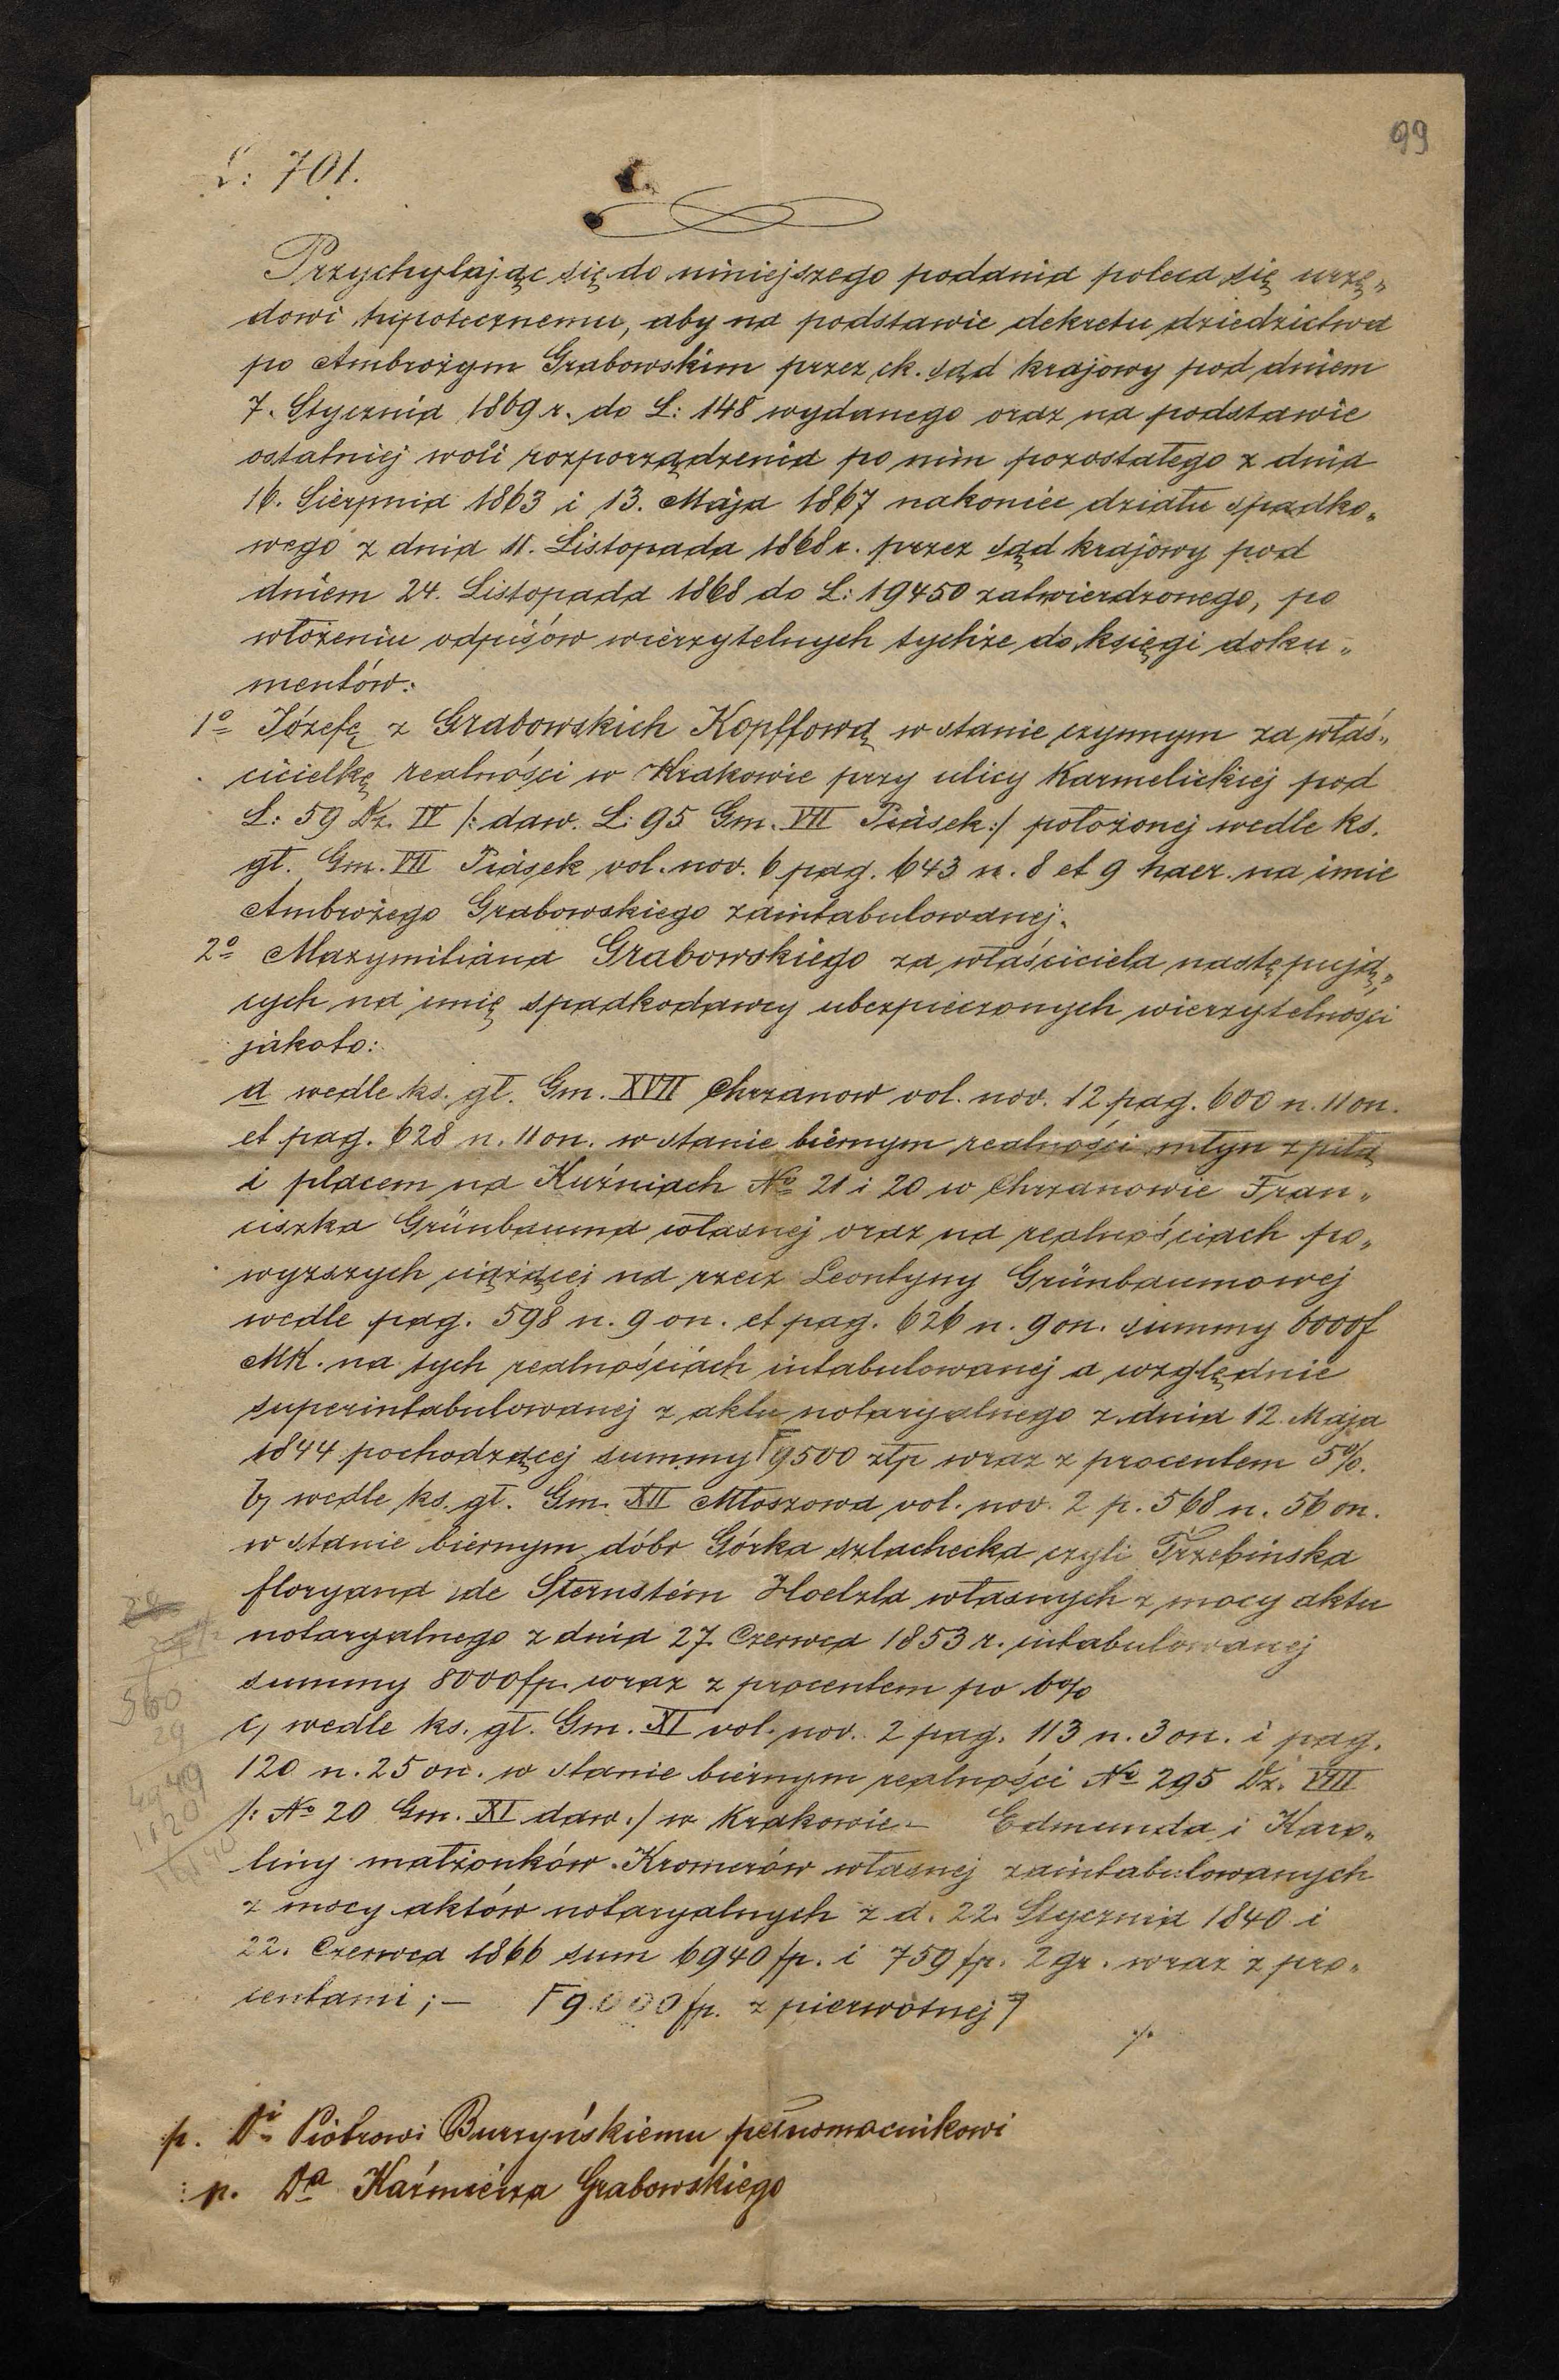 99
L: 701.
Przychylając się do niniejszego podania poleca się urzę„
dowi hipotecznemu, aby na podstawie dekretu dziedzictwa
po Ambrożym Grabowskim przez ck. sąd krajowy pod dniem
7. Stycznia 1869 r. do L: 148 wydanego oraz na podstawie
ostatniej woli rozporządzenia po nim pozostałego z dnia
16. Sierpnia 1863 i 13. Maja 1867 nakoniec działu spadko„
wego z dnia 11. Listopada 1868 r. przez sąd krajowy pod
dniem 24. Listopada 1868 do L: 19450 zatwierdzonego, po
włożeniu odpisów wierzytelnych tychże do księgi doku„
mentów:
1º Józefę z Grabowskich Kopffową w stanie czynnym za właś„
cicielkę realności w Krakowie przy ulicy Karmelickiej pod
L: 59 Dz. IV /: daw. L: 95 Gm. VII Piasek :/ położonej wedle ks.
gł. Gm. VII Piasek vol. nov. 6 pag. 643 n. 8 et 9 haer. na imie
Ambrożego Grabowskiego zaintabulowanej.
2º Maxymiliana Grabowskiego za właściciela następują„
cych na imię spadkodawcy ubezpieczonych wierzytelności
jakoto:
a wedle ks. gł. Gm. XVII Chrzanow vol. nov. 12 pag. 600 n. 11 on.
et pag. 628 n. 11 on. w stanie biernym realności młyn z piłą
i placem na Kuźniach Nº 21 i 20 w Chrzanowie Fran„
ciszka Grünbauma własnej oraz na realnościach po„
wyższych ciążącej na rzecz Leontyny Grünbaumowej
wedle pag. 598 n. 9 on. et pag. 626 n. 9 on. summy 6000f
MK. na tych realnościach intabulowanej a względnie
superintabulowanej z aktu notaryalnego z dnia 12. Maja
1844 pochodzącej summy Γ9500 złp wraz z procentem 5%.
b, wedle ks. gł. Gm. XII Młoszowa vol. nov. 2 p. 568 n. 56 on.
w stanie biernym dóbr Górka szlachecka czyli Trzebinska
floryana de Sternstein Hoelzla własnych z mocy aktu
notaryalnego z dnia 27. Czerwca 1853 r. intabulowanej
summy 8000fp. wraz z procentem po 6%
c, wedle ks. gł. Gm. XI vol. nov. 2 pag. 113 n. 3 on. i pag.
120 n. 25 on. w stanie biernym realności Nº 295 Dz. VIII
/: Nº 20 Gm. XI daw. :/ w Krakowie – Edmunda i Karo„
liny małżonków Kromerów własnej zaintabulowanych
z mocy aktów notaryalnych z d. 22. Stycznia 1840 i
22. Czerwca 1866 sum 6940 fp. i 759 fp. 2 gr. wraz z pro„
centami ; – Γ 9000 fp. z pierwotnej ⁊
./.
p. Di Piotrowi Burzyńskiemu pełnomocnikowi
p. Da Kaźmierza Grabowskiego
560
29